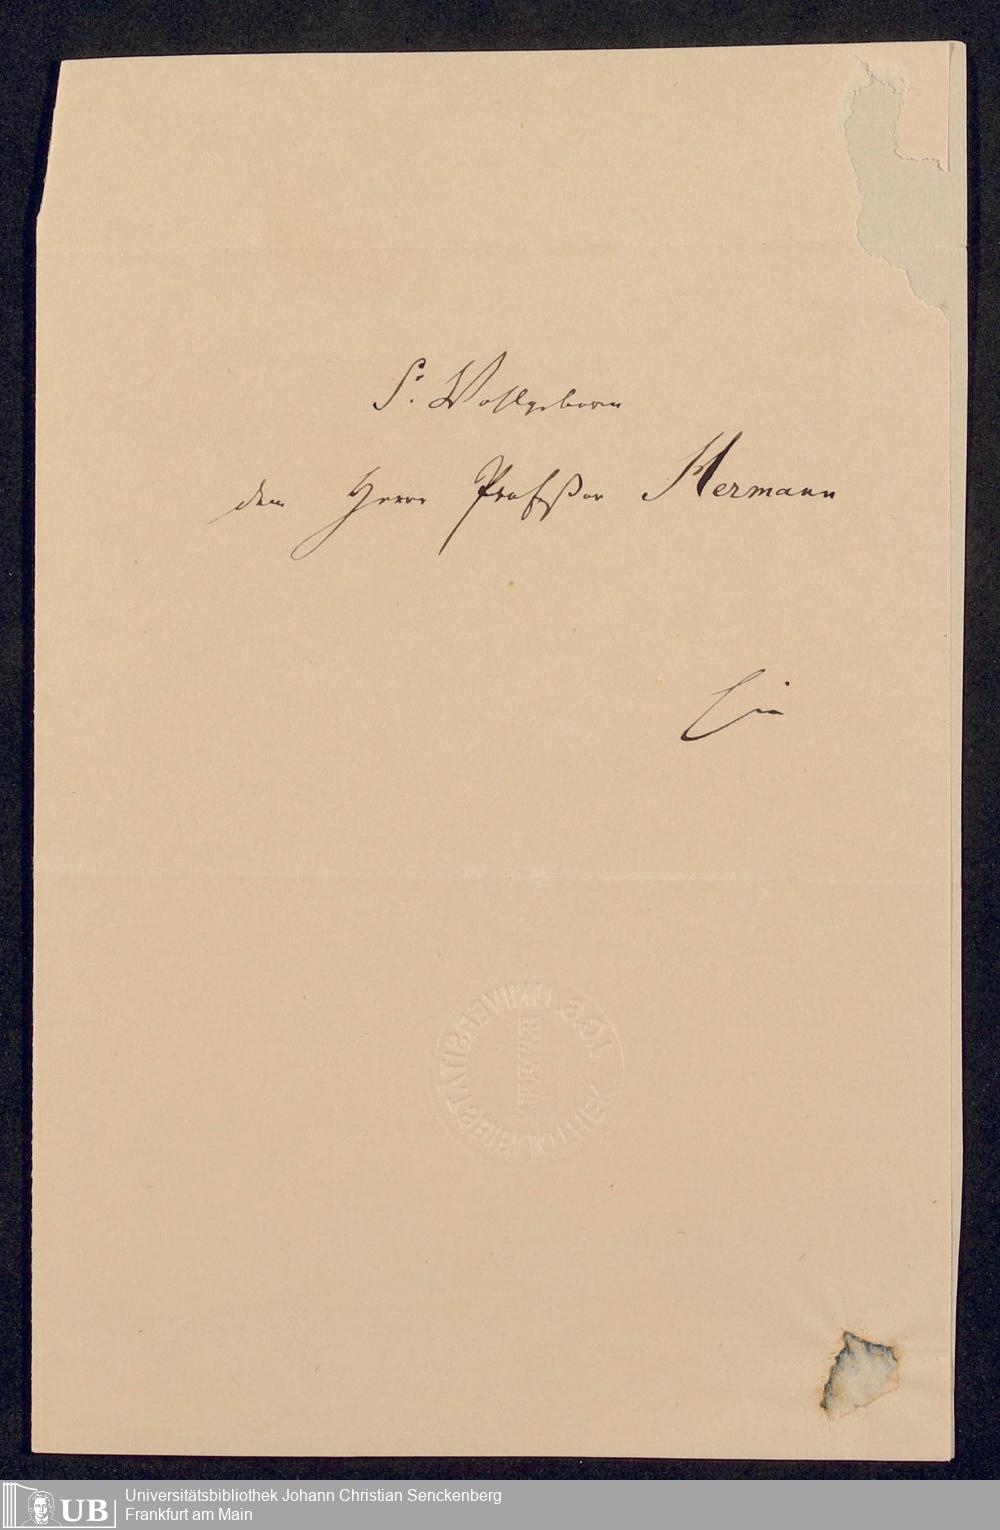 Sr. Wohlgeboren
dem Herrn Professor Hermann
J.C.S. UNIVERSITÄTSBIBLIOTHEK
UB
Universitätsbibliothek Johann Christian Senckenberg
Frankfurt am Main